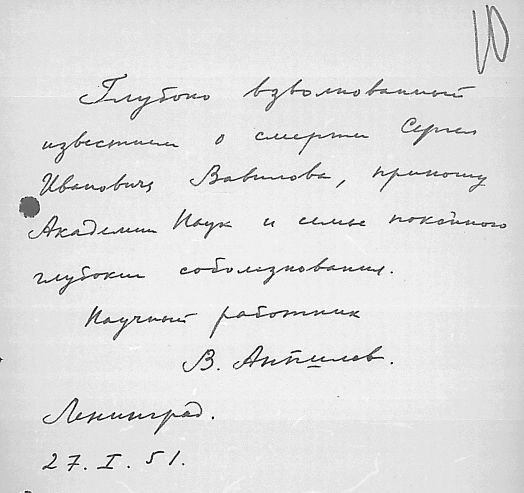 10
Глубоко взволнованный
известием о смерти Сергея
Ивановича Вавилова, приношу
Академии Наук и семье покойного
глубокие соболезнования.
Научный работник
В.
Ленинград.
27. I. 51.